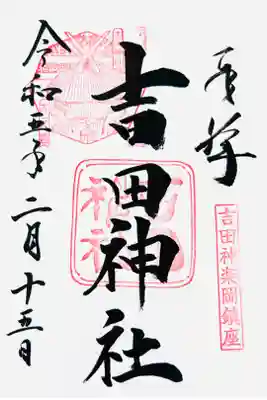 奉拝
吉田神楽岡鎮座
吉田神社
令和五年二月十五日